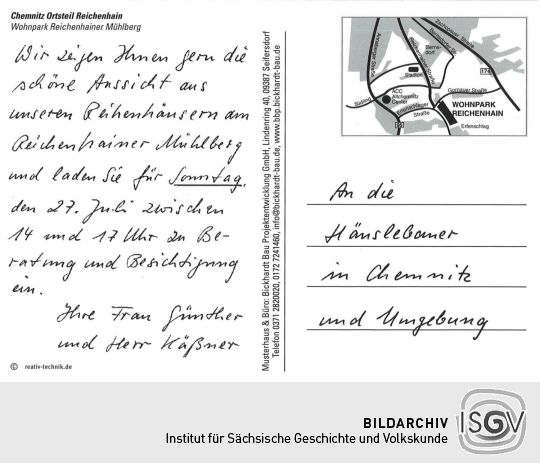 Chemnitz Ortsteil Reichenhain
Wohnpark Reichenhainer Mühlberg
Wir zeigen Ihnen gern die
schöne Aussicht aus
unseren Reihenhäusern am
Reichenhainer Mühlberg
und laden Sie für Sonntag,
den 27. Juli zwischen
14 und 17 Uhr zu Be-
ratung und Besichtigung
ein.
Ihre Frau Günther
und Herr Käßner
© reativ-technik.de
Musterhaus & Büro: Bickhardt Bau Projektentwicklung GmbH, Lindenring 40, 09387 Seifersdorf
Telefon 0371 2820020, 0172 7241460, info@bickhardt-bau.de, www.bbp.bickhardt-bau.de
Zschopauer Straße
Bernsdorfer Str.
Reichenhainer Straße
Annaberger Straße
Berns-
dorf
Stadion
174
Gornauer Straße
Südring
ACC
Altchemnitz
Center
Erfenschlager
Straße
95
WOHNPARK
REICHENHAIN
Erfenschlag
An die
Häuslebauer
in Chemnitz
und Umgebung
BILDARCHIV
Institut für Sächsische Geschichte und Volkskunde
ISGV